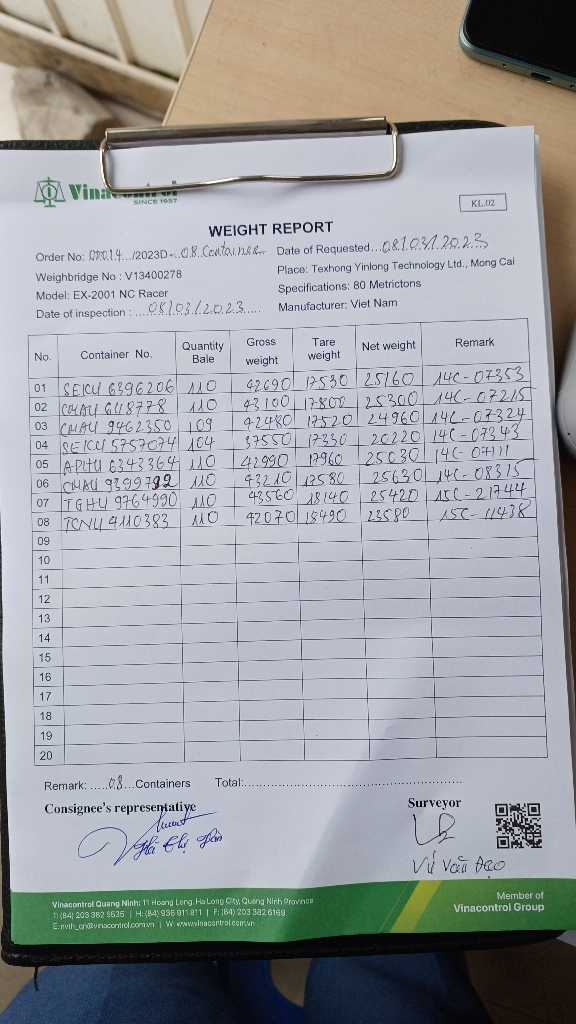 Vinacontrol
SINCE 1957
KL.02
WEIGHT REPORT
Order No: 00014 /2023D - 08 Container
Date of Requested...08/03/2023
Weighbridge No : V13400278
Place: Texhong Yinlong Technology Ltd., Mong Cai
Model: EX-2001 NC Racer
Specifications: 80 Metrictons
Date of inspection : ....08/03/2023.....
Manufacturer: Viet Nam
No. Container No. Quantity Bale Gross weight Tare weight Net weight Remark
01 SEKU 6396206 110 42690 17530 25160 14C-07353
02 CMAU 6118778 110 43100 17800 25300 14C-07215
03 CMAU 9462350 109 42480 17520 24960 14C-07324
04 SEKU 5757074 104 37550 17330 20220 14C-07343
05 APHU 6343364 110 42990 17960 25030 14C-07111
06 CMAU 9399792 110 43210 17580 25630 14C-08315
07 TGHU 9764990 110 43560 18140 25420 15C-21744
08 TCNU 4110383 110 42070 18490 23580 15C-11438
09
10
11
12
13
14
15
16
17
18
19
20
Remark: .....08...Containers Total:..........................................................
Consignee's representative
Surveyor
Vũ Văn Đạo
Vinacontrol Quang Ninh: 11 Hoang Long, Ha Long City, Quang Ninh Province
T: (84) 203 382 5535 | H: (84) 936 911 811 | F: (84) 203 382 6169
E: nvth_qn@vinacontrol.com.vn | W: www.vinacontrol.com.vn
Member of
Vinacontrol Group